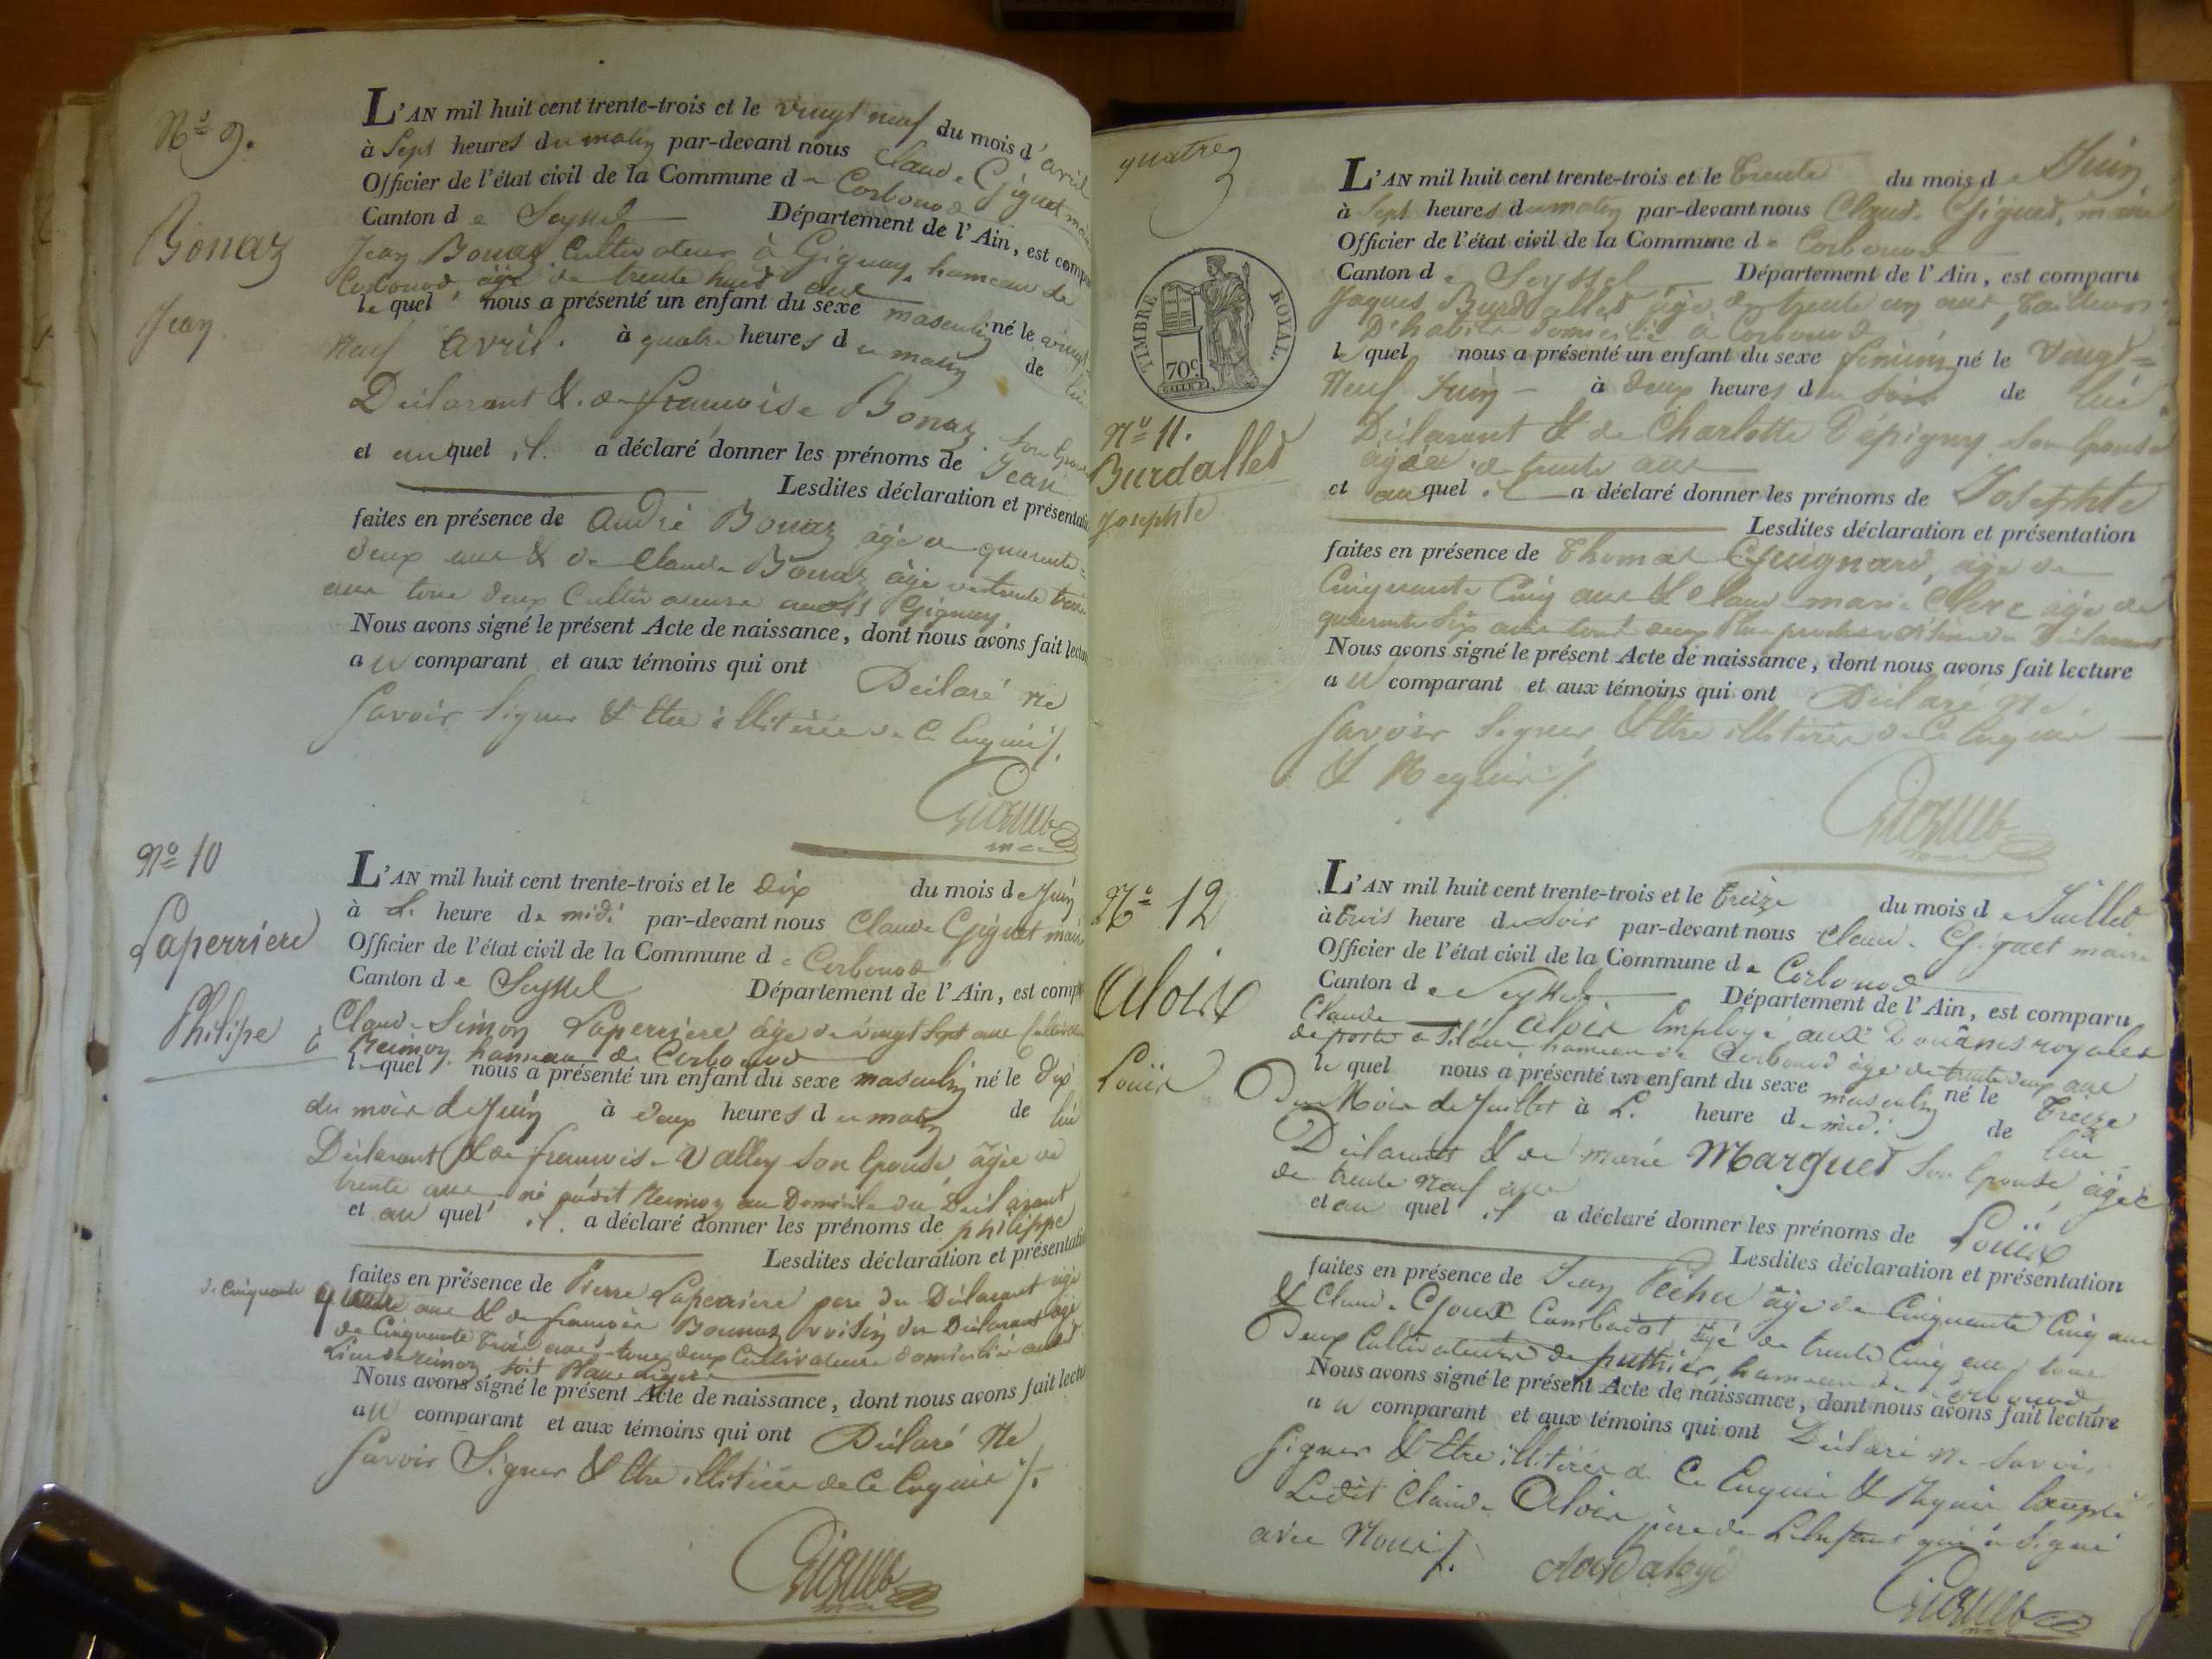 N.º 9.
Bonaz
Jean
L'AN mil huit cent trente-trois et le vingt neuf du mois d'avril
à Sept heures du matin par-devant nous Claude Giguet maire
Officier de l'état civil de la Commune de Corbonod
Canton de Seyssel Département de l'Ain, est compa
Jean Bonaz Cultivateur à Gignay, hameau de
Corbonod âgé de trente huit ans
le quel nous a présenté un enfant du sexe masculin né le vingt-
neuf avril. à quatre heures du matin de lui
Déclarant & de françoise Bonaz son épouse
et auquel il a déclaré donner les prénoms de Jean
Lesdites déclaration et présentati
faites en présence de André Bonaz âgé de quarante-
deux ans & de Claude Bonaz âgé de trente trois
ans tous deux Cultivateurs audit Gignay.
Nous avons signé le présent Acte de naissance, dont nous avons fait lectu
au comparant et aux témoins qui ont Déclaré ne
Savoir Signer & être illitérés de ce Enquis/.
Giguet
N.º 10
Laperriere
Philipe
L'AN mil huit cent trente-trois et le Dix du mois de Juin
à L. heure de midi par-devant nous Claude Giguet maire
Officier de l'état civil de la Commune de Corbonod
Canton de Seyssel Département de l'Ain, est comp
Claude Simon Laperriere âgé de vingt Sept ans Cultivateur
à Reimoz hameau de Corbonod
le quel nous a présenté un enfant du sexe masculin né le Dix
du mois de Juin à deux heures du matin de lui
Déclarant & de françoise Valley Son épouse âgée de
trente ans, né audit Reimoz au Domicile du Déclarant
et au quel il a déclaré donner les prénoms de philippe
Lesdites déclaration et présentati
faites en présence de Pierre Laperriere pere du Déclarant âgé
de Cinquante quatre ans & de françois Bonnaz voisin du Déclarant âgé
de Cinquante trois ans tous deux Cultivateurs domiciliés audit
Lieu de reimoz
Nous avons signé le présent Acte de naissance, dont nous avons fait lectu
au comparant et aux témoins qui ont Déclaré Ne
Savoir Signer & être illitérés de ce Enquis/.
Giguet
quatre
TIMBRE ROYAL.
70c
N.º 11.
Burdallet
Josephte
L'AN mil huit cent trente-trois et le trente du mois de Juin
à Sept heures du matin par-devant nous Claude Giguet, maire
Officier de l'état civil de la Commune de Corbonod
Canton de Seyssel Département de l'Ain, est comparu
Jaques Burdallet âgé de trente un ans, tailleur
D'habits domicilié à Corbonod
le quel nous a présenté un enfant du sexe féminin né le Vingt-
Neuf Juin à deux heures du soir de lui
Déclarant & de Charlotte Dépigny son épouse
âgée de trente ans
et auquel il a déclaré donner les prénoms de Josephte
Lesdites déclaration et présentation
faites en présence de Thomas Guignard, âgé de
Cinquante Cinq ans & Claude marie Clerc âgé de
quarante Six ans tous deux plus proches voisins du Déclarant
Nous avons signé le présent Acte de naissance, dont nous avons fait lecture
au comparant et aux témoins qui ont Déclaré Ne
Savoir Signer & être illitérés de ce Enquis
& Requis/.
Giguet
N.º 12
Aloix
Louis
L'AN mil huit cent trente-trois et le treize du mois de Juillet
à trois heure du soir par-devant nous Claude Giguet maire
Officier de l'état civil de la Commune de Corbonod
Canton de Seyssel Département de l'Ain, est comparu
Claude Aloix Employé aux Douânes royales
de poste à hameau de Corbonod âgé de trente deux ans
le quel nous a présenté un enfant du sexe masculin né le treize
Du Mois de Juillet à L. heure de midi de lui
Déclarant & de marie Marquet Son épouse, âgée
de trente Neuf ans
et au quel il a déclaré donner les prénoms de Louis
Lesdites déclaration et présentation
faites en présence de Jean Péchu âgé de Cinquante Cinq ans
& Claude Goux Cambadot âgé de trente Cinq ans tous
Deux Cultivateurs de puthier, hameau de Corbonod
Nous avons signé le présent Acte de naissance, dont nous avons fait lecture
au comparant et aux témoins qui ont Déclaré ne Savoir
Signer & être illitérés de ce Enquis & Requis Excepté
Ledit Claude Aloix père de L'Enfant qui a Signé
avec Nous/.
Giguet